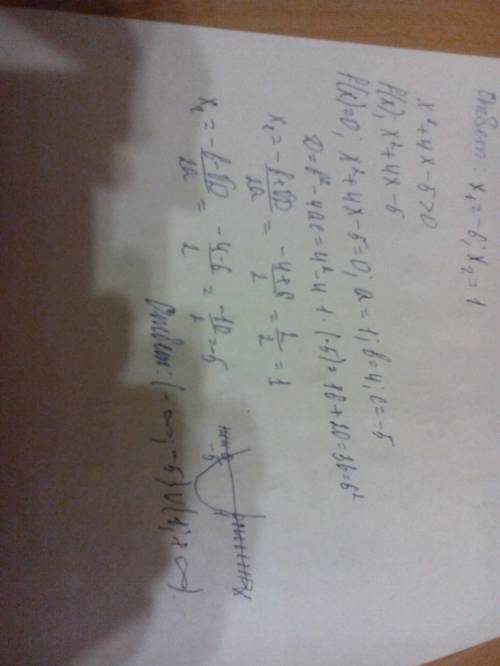 Ответ: x₁ = -6; x₂ = 1
x² + 4x - 5 > 0
f(x), x² + 4x - 5
f(x) = 0; x² + 4x - 5 = 0; a = 1; b = 4; c = -5
D = b² - 4ac = 4² - 4·1·(-5) = 16 + 20 = 36 = 6²
x₁ = (-b + √D)/2a = (-4 + 6)/2 = 2/2 = 1
x₂ = (-b - √D)/2a = (-4 - 6)/2 = -10/2 = -5
-5 1 x
Ответ: (-∞; -5) ∪ (1; +∞)